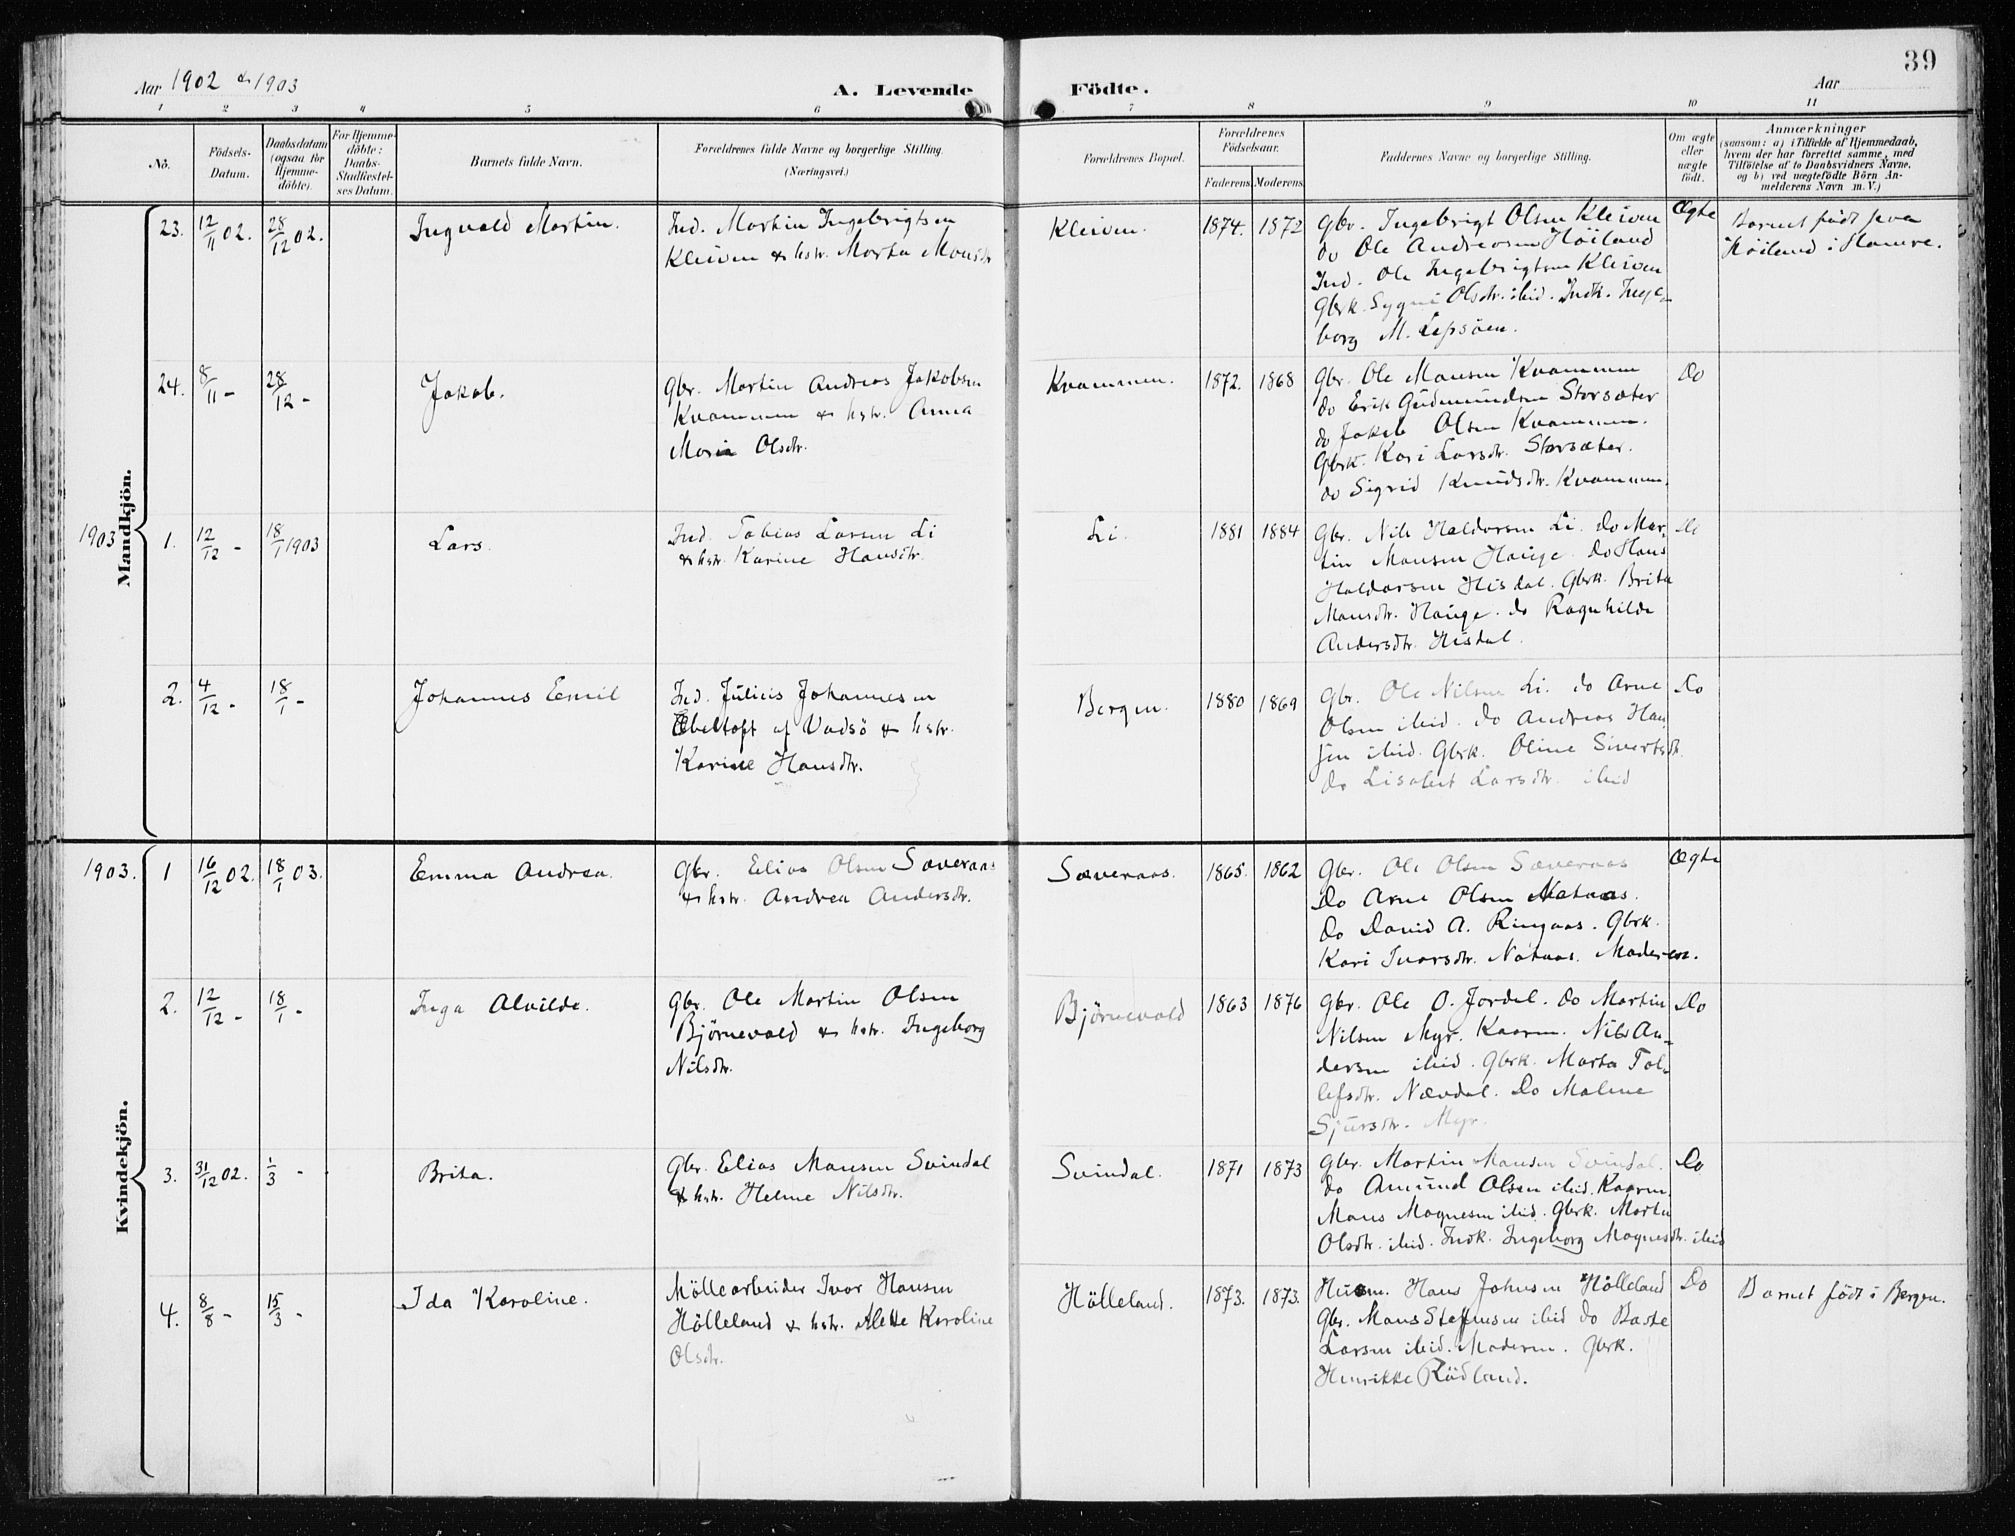 39
Aar 1902 & 1903
A. Levende Födte.
Aar
1 2 3 4 5 6 7 8 9 10 11
Nô.
Födsels-
Datum.
Daabsdatum
(ogsaa for
Hjemme-
döbte).
For Hjemme-
döbte:
Daabs-
Stadfæstel-
ses Datum.
Barnets fulde Navn.
Forældrenes fulde Navne og borgerlige Stilling.
(Næringsvei.)
Forældrenes Bopæl.
Forældrenes
Födselsaar.
Faderens. Moderens.
Faddernes Navne og borgerlige Stilling.
Om ægte
eller
uægte
födt.
Anmærkninger
(saasom: a) i Tilfælde af Hjemmedaab,
hvem der har forrettet samme, med
Tilföielse af to Daabsvidners Navne,
og b) ved uægtefödte Börn An-
melderens Navn m. V.)
Mandkjön.
23. 12/11 02. 28/12 02.
Ingvald Martin.
Ind. Martin Ingebrigtsen
Kleiven & hstr. Marta Monsdr
Kleiven.
1874. 1872
Gbr. Ingebrigt Olsen Kleiven
do Ole Andersen Höiland
Ind. Ole Ingebrigtsen Kleiven
Gbrk. Sygni Olsdtr. ibid. Indk. Inge-
borg M. Lepsöen.
Ægte
Barnet födt paa
Höiland i Hamre.
24. 8/11 - 28/12 -
Jakob.
Gbr. Martin Andreas Jakobsen
Kvammen & hstr. Anna
Maria Olsdtr.
Kvammen.
1872. 1868
Gbr. Ole Monsen Kvammen
do Erik Gudmundsen Storsæter
do Jakob Olsen Kvammen.
Gbrk. Kari Larsdtr. Storsæter.
do Sigrid Knudsdtr. Kvammen.
Do
1903
1. 12/12 - 18/1 1903
Lars.
Ind. Tobias Larsen Li
& hstr. Karine Hansdtr.
Li.
1881 1884
Gbr. Nils Haldorsen Li. do Mar-
tin Monsen Hauge. Do Hans
Haldorsen Hisdal. Gbrk. Brita
Monsdtr. Hauge. do Ragnhilde
Andersdtr. Hisdal.
Do
2. 4/12 - 18/1 -
Johannes Emil
Ind. Julius Johannesen
Ebeltoft af Vadsö & hstr.
Karine Hansdtr.
Bergen.
1880 1869
Gbr. Ole Nilsen Li. do Arne
Olsen ibid. do Andreas Han
sen ibid. Gbrk. Oline Sivertsdtr.
do Lisabet Larsdtr. ibid
Do
Kvindekjön.
1903. 1 16/12 02. 18/1 03.
Emma Andrea.
Gbr. Elias Olsen Sæveraas
& hstr. Andrea Andersdtr.
Sæveraas.
1865. 1862
Gbr. Ole Olsen Sæveraas
Do Arne Olsen Nataas.
Do David A. Ringaas. Gbrk.
Kari Ivarsdtr. Nataas. Moderen.
Ægte
2. 12/12 - 18/1 -
Inga Alvilde.
Gbr. Ole Martin Olsen
Björnevald & hstr. Ingeborg
Nilsdtr.
Björnevald
1863 1876
Gbr. Ole O. Jordal. do Martin
Nilsen Myr. Kaarm. Nils An-
dersen ibid. Gbrk. Marta Tol-
lefsdtr. Nævdal. Do Malene
Sjursdtr. Myr.
Do
3. 31/12 02. 1/3 -
Brita.
Gbr. Elias Monsen Svindal
& hstr. Helene Nilsdtr.
Svindal.
1871 1873
Gbr. Martin Monsen Svindal.
Do Amund Olsen ibid. Kaarm.
Mons Magnesen ibid. Gbrk. Marta
Olsdtr. ibid. Indk. Ingeborg Magnesdtr. ibid
Do
4. 8/8 - 15/3 -
Ida Karoline.
Möllearbeider Ivar Hansen
Hölleland & hstr. Alette Karoline
Olsdtr.
Hölleland.
1873. 1873.
Husm. Hans Johnsen Hölleland
Gbr. Mons Steffensen ibid Do Baste
Larsen ibid. Moderen. Gbrk.
Henrikke Rödland.
Do
Barnet födt i Bergen.